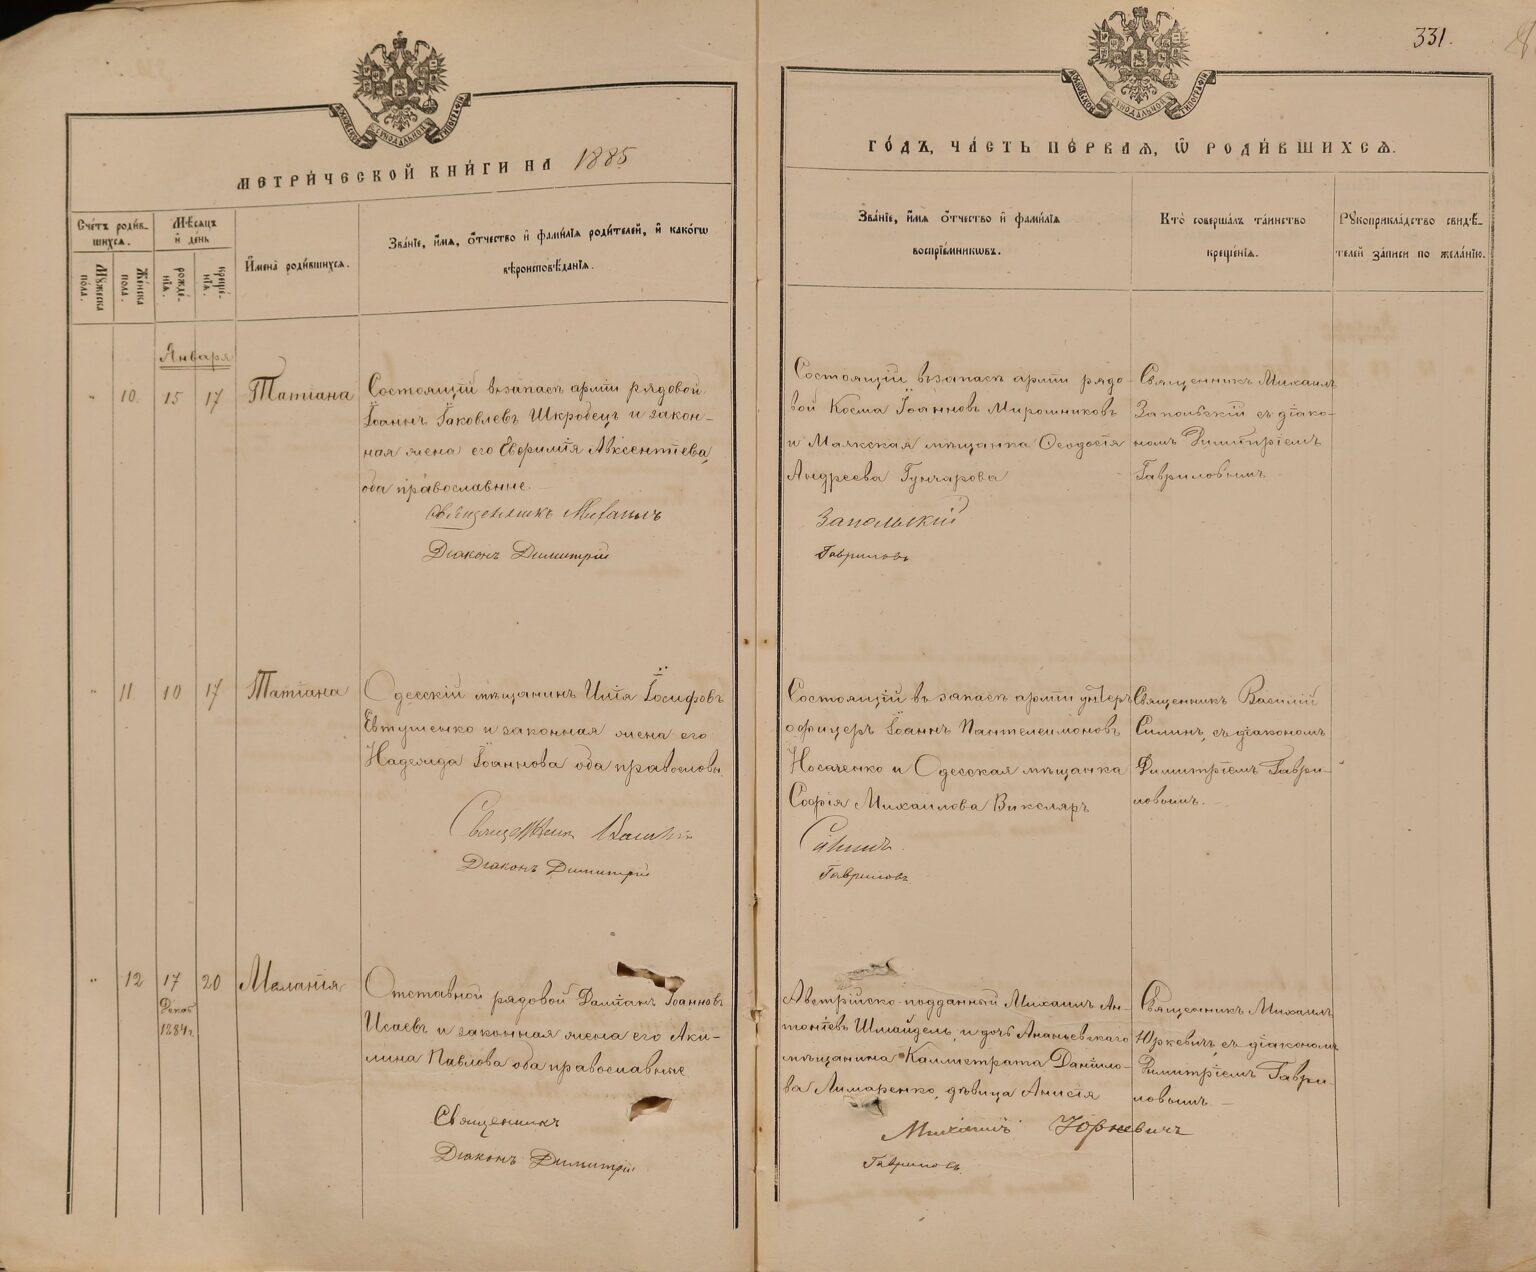 331.
МОСКОВСКОЙ СѴНОДАЛЬНОЙ ТИПОГРАФІИ
МОСКОВСКОЙ СѴНОДАЛЬНОЙ ТИПОГРАФІИ
МЕТРИ́ЧЕСКОЙ КНИ́ГИ НА 1885
ГО́ДЪ, ЧА́СТЬ ПЕ́РВАѦ, Ѡ РОДИ́ВШИХСѦ.
Сче́тъ роди́в-
шихсѧ.
Мꙋ́жеска по́ла.
Же́нска пола.
Мѣ́сѧцъ
и҆ де́нь
рожде́-
нїѧ.
креще́-
нїѧ.
И҆мена̀ роди́вшихсѧ.
Зва́нїе, и҆́мѧ, ѻ҆́тчество и҆ фами́лїѧ роди́телей, и҆ како́гѡ
вѣроисповѣ́данїѧ.
Зва́нїе, и҆́мѧ ѻ҆́тчество и҆ фами́лїѧ
воспрїе́мникѡвъ.
Кто̀ соверша́лъ та́инство
креще́нїѧ.
Рꙋкоприкла́дство свидѣ́-
телей за́писи по жела́нїю.
Января
" 10 15 17 Татіана
Состоящій въ запасѣ арміи рядовой
Іоаннъ Іаковлевъ Шкробецъ и закон-
ная жена его Евфимія Авксентіева,
оба православные.
Священникъ Михаилъ
Діаконъ Димитрій
Состоящій въ запасѣ арміи рядо-
вой Косма Іоанновъ Мирошниковъ
и Маякская мѣщанка Ѳеодосія
Андреева Гунчарова
Запольскій
Гавриловъ
Священникъ Михаилъ
Запольскій съ діако-
номъ Димитріемъ
Гавриловымъ.
" 11 10 17 Татіана
Одесскій мѣщанинъ Илія Іосифовъ
Евтушенко и законная жена его
Надежда Іоаннова оба православн.
Священникъ
Діаконъ Димитрій
Состоящій въ запасѣ арміи унтеръ
офицеръ Іоаннъ Пантелеимоновъ
Носаченко и Одесская мѣщанка
Софія Михаилова Виксляръ
Силинъ.
Гавриловъ
Священникъ Василій
Силинъ, съ діакономъ
Димитріемъ Гаври-
ловымъ.
" 12 17 20 Меланія
Декаб
1884 г.
Отставной рядовой Даміанъ Іоанновъ
Исаевъ и законная жена его Аки-
лина Павлова оба православные
Священникъ
Діаконъ Димитрій
Австрійско-подданный Михаилъ Ан-
тоніевъ Шмайдель, и дочь Ананьевскаго
мѣщанина Каллистрата Даніило-
ва Лимаренко, дѣвица Анисія
Михаилъ Юркевичъ
Гавриловъ.
Священникъ Михаилъ
Юркевичъ, съ діакономъ
Димитріемъ Гаври-
ловымъ.